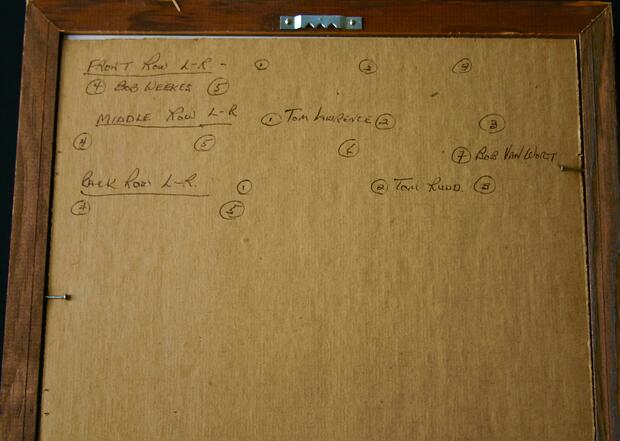 FRONT ROW L-R - ① ② ③
④ BOB WEEKES ⑤
MIDDLE ROW L-R ① TOM LAWRENCE ② ③
④ ⑤ ⑥
⑦ BOB VAN WORT
BACK ROW L-R. ① ② TOM RUDD. ③
④ ⑤